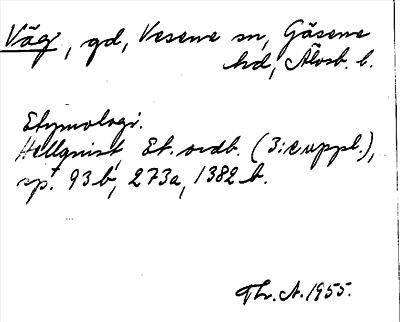 Väg, gd, Vesene sn, Gäsene
hd, Älvsb. l.
Etymologi.
Hellquist, Et. ordb. (3:e uppl.),
sp. 93 b, 273a, 1382 b.
Th. A. 1955.